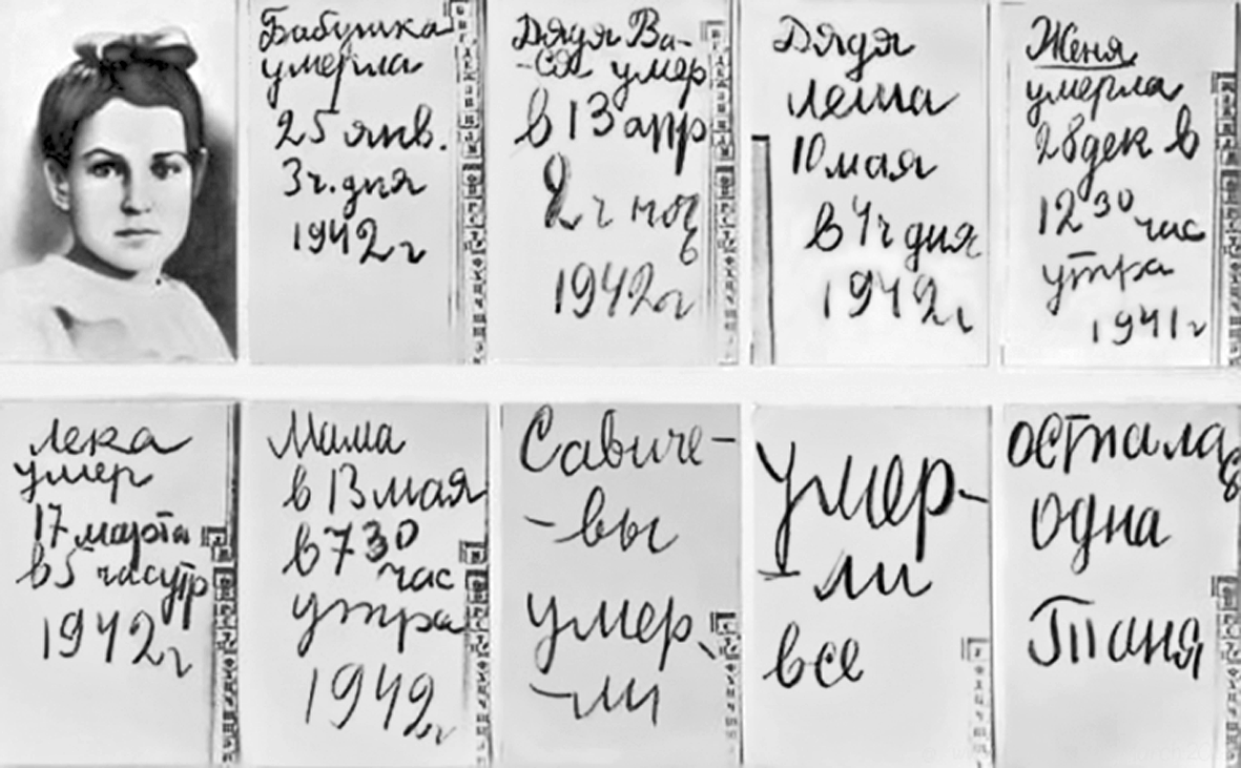 Бабушка
умерла
25 янв.
3ч. дня
1942 г
Дядя Ва-
-ся умер
в 13 апр
2 ч ноч
ь
1942 г
Дядя
Леша
10 мая
в 4 ч дня
1942 г
Женя
умерла
28 дек в
12 30 час
утра
1941 г
Лека
умер
17 марта
в 5 часутр
1942 г
Мама
в 13 мая
в 7 30
час
утра
1942 г
Савиче-
-вы
умер
-ли
Умер-
-ли
все
Осталас
ь
одна
Таня